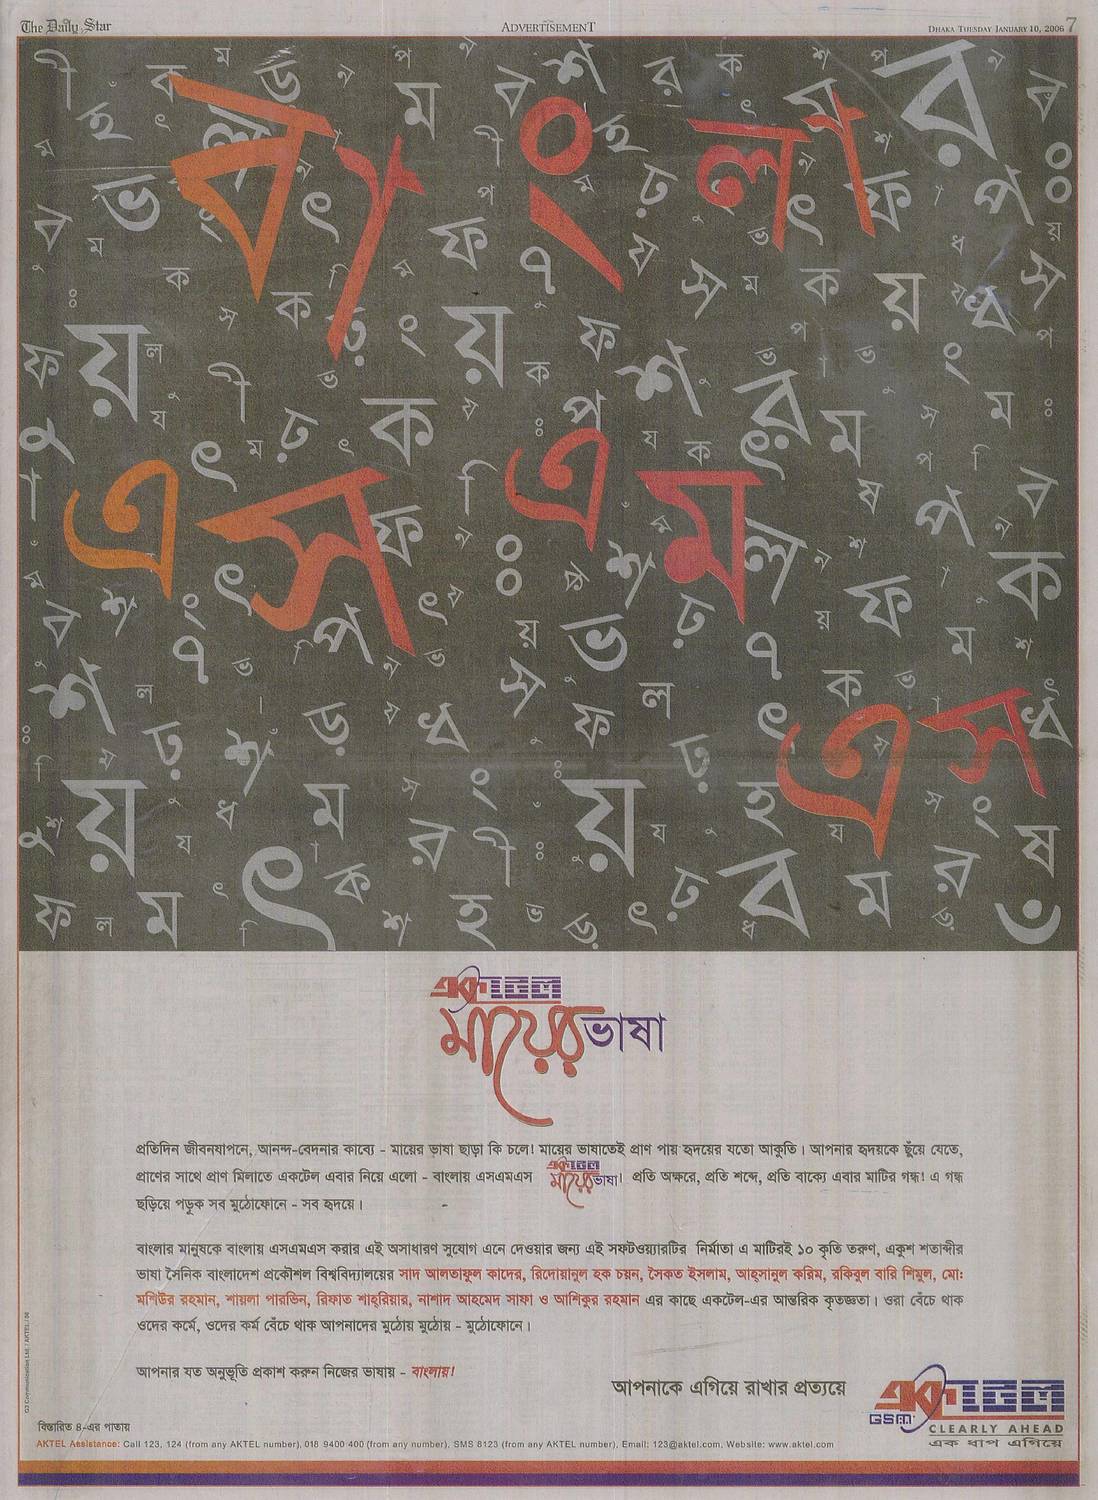 The Daily Star
ADVERTISEMENT
DHAKA TUESDAY JANUARY 10, 2006 7
বাংলা
এস এম
এস
একটেল
মায়ের ভাষা
প্রতিদিন জীবনযাপনে, আনন্দ-বেদনার কাব্যে - মায়ের ভাষা ছাড়া কি চলে! মায়ের ভাষাতেই প্রাণ পায় হৃদয়ের যতো আকুতি। আপনার হৃদয়কে ছুঁয়ে যেতে,
প্রাণের সাথে প্রাণ মিলাতে একটেল এবার নিয়ে এলো - বাংলায় এসএমএস একটেল মায়ের ভাষা। প্রতি অক্ষরে, প্রতি শব্দে, প্রতি বাক্যে এবার মাটির গন্ধ! এ গন্ধ
ছড়িয়ে পড়ুক সব মুঠোফোনে - সব হৃদয়ে।
বাংলার মানুষকে বাংলায় এসএমএস করার এই অসাধারণ সুযোগ এনে দেওয়ার জন্য এই সফটওয়্যারটির নির্মাতা এ মাটিরই ১০ কৃতি তরুণ, একুশ শতাব্দীর
ভাষা সৈনিক বাংলাদেশ প্রকৌশল বিশ্ববিদ্যালয়ের সাদ আলতাফুল কাদের, রিদোয়ানুল হক চয়ন, সৈকত ইসলাম, আহ্সানুল করিম, রকিবুল বারি শিমুল, মো:
মশিউর রহমান, শায়লা পারভিন, রিফাত শাহ্‌রিয়ার, নাশাদ আহমেদ সাফা ও আশিকুর রহমান এর কাছে একটেল-এর আন্তরিক কৃতজ্ঞতা। ওরা বেঁচে থাক
ওদের কর্মে, ওদের কর্ম বেঁচে থাক আপনাদের মুঠোয় মুঠোয় - মুঠোফোনে।
আপনার যত অনুভূতি প্রকাশ করুন নিজের ভাষায় - বাংলায়!
আপনাকে এগিয়ে রাখার প্রত্যয়ে
একটেল
GSM
CLEARLY AHEAD
এক ধাপ এগিয়ে
বিস্তারিত ৪-এর পাতায়
AKTEL Assistance: Call 123, 124 (from any AKTEL number), 018 9400 400 (from any number), SMS 8123 (from any AKTEL number), Email: 123@aktel.com, Website: www.aktel.com